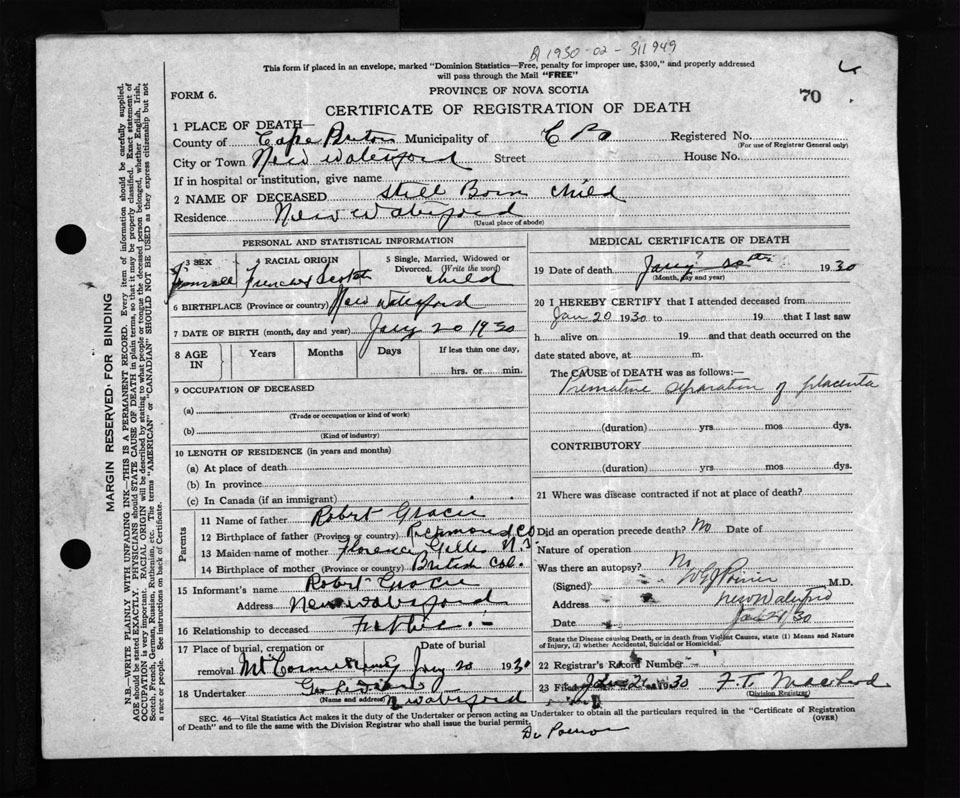 B 1930-02-311949
This form if placed in an envelope, marked "Dominion Statistics—Free, penalty for improper use, $300," and properly addressed
will pass through the Mail "FREE"
FORM 6.
PROVINCE OF NOVA SCOTIA
70
CERTIFICATE OF REGISTRATION OF DEATH
1 PLACE OF DEATH—
County of Cape Breton Municipality of C B Registered No.
(For use of Registrar General only)
City or Town New Waterford Street House No.
If in hospital or institution, give name
2 NAME OF DECEASED Still Born child
Residence New Waterford
(Usual place of abode)
PERSONAL AND STATISTICAL INFORMATION
3 SEX 4 RACIAL ORIGIN 5 Single, Married, Widowed or
Divorced. (Write the word)
child
6 BIRTHPLACE (Province or country) New Waterford
7 DATE OF BIRTH (month, day and year) Jany 20 1930
8 AGE IN Years Months Days If less than one day,
hrs. or min.
9 OCCUPATION OF DECEASED
(a)
(Trade or occupation or kind of work)
(b)
(Kind of industry)
10 LENGTH OF RESIDENCE (in years and months)
(a) At place of death
(b) In province
(c) In Canada (if an immigrant)
Parents
11 Name of father Robert Gracie
12 Birthplace of father (Province or country) Richmond Co
N.S
13 Maiden name of mother Florence Gillis
14 Birthplace of mother (Province or country) British Col.
15 Informant's name Robert Gracie
Address New Waterford
16 Relationship to deceased Father
17 Place of burial, cremation or Date of burial
removal Mt Jany 20 1930
18 Undertaker Geo
(Name and address) N Waterford
MEDICAL CERTIFICATE OF DEATH
19 Date of death Jany 1930
(Month, day and year)
20 I HEREBY CERTIFY that I attended deceased from
Jan 20 1930 to 19 that I last saw
h alive on 19 and that death occurred on the
date stated above, at m.
The CAUSE of DEATH was as follows:—
Premature separation of placenta
(duration) yrs mos dys.
CONTRIBUTORY
(duration) yrs. mos dys.
21 Where was disease contracted if not at place of death?
Did an operation precede death? No Date of
Nature of operation
Was there an autopsy? No
(Signed) M.D.
Address New Waterford
Date
State the Disease causing Death, or in death from Violent Causes, state (1) Means and Nature
of Injury, (2) whether Accidental, Suicidal or Homicidal.
22 Registrar's Record Number
23 Filed 1930 F. T.
(Division Registrar)
SEC. 46—Vital Statistics Act makes it the duty of the Undertaker or person acting as Undertaker to obtain all the particulars required in the "Certificate of Registration
of Death" and to file the same with the Division Registrar who shall issue the burial permit.
(OVER)
MARGIN RESERVED FOR BINDING
N.B.—WRITE PLAINLY WITH UNFADING INK—THIS IS A PERMANENT RECORD. Every item of information should be carefully supplied.
AGE should be stated EXACTLY. PHYSICIANS should STATE CAUSE OF DEATH in plain terms, so that it may be properly classified. Exact statement of
OCCUPATION is very important. RACIAL ORIGIN will be described by stating to what people or tongue the deceased person belonged, whether English, Irish,
Scotch, French, German, Russian, Ruthenian, etc. The terms "AMERICAN" or "CANADIAN" SHOULD NOT BE USED as they express citizenship but not
a race or people. See instructions on back of Certificate.